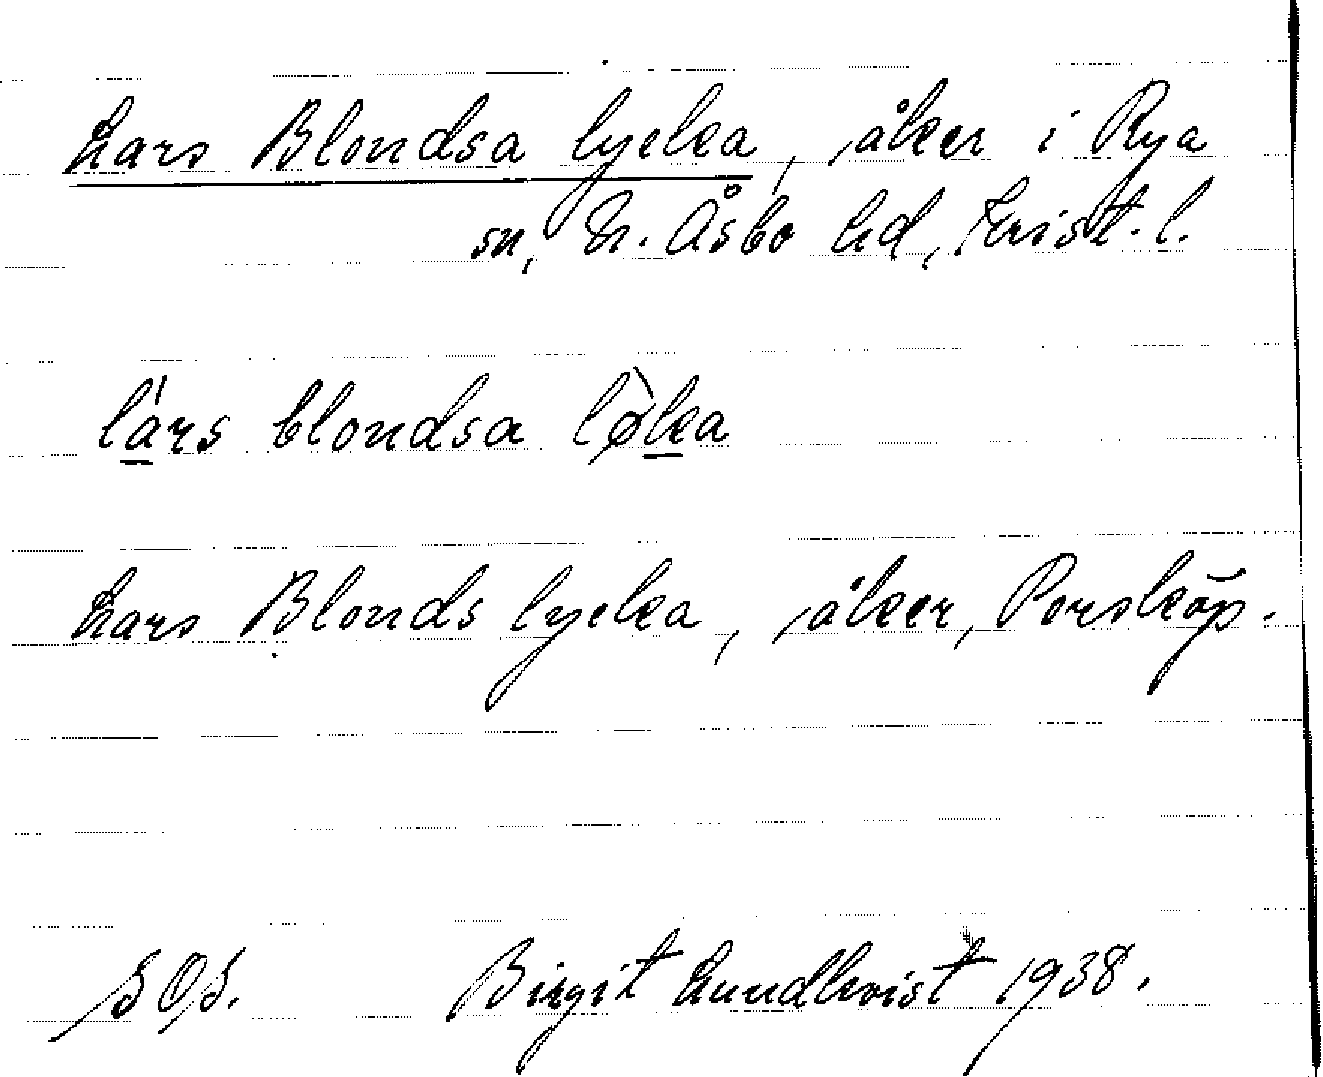 Lars Blondsa lycka, åker i Rya
sn, N. Åsbo hd, Krist. l.
lárs blondsa lø̀ka
Lars Blonds lycka, åker, Porsköp.
SOS. Birgit Lundkvist 1938.